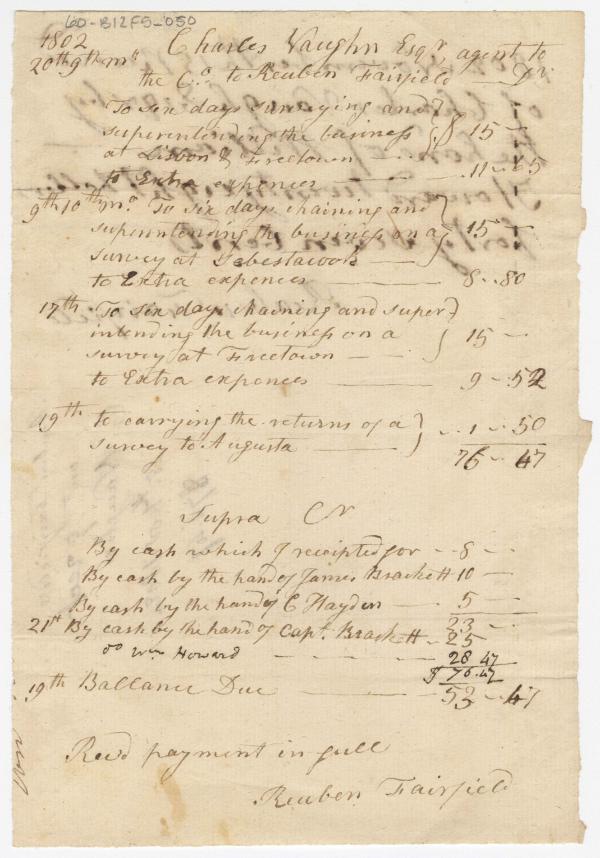 60-B12F5-050
1802
20th 9th mo Charles Vaughn Esqr, agent to
the Co to Reuben Fairfield — Dr.
To six days surveying and
superintending the business } $ 15 —
at Lisbon & Freetown —
to Extra expences — 11 - 65
9th 10th mo. To six days chaining and
superintending the business on a } 15 —
survey at
to Extra expences — 8 - 80
17th To six days chaining and super
intending the business on a } 15 —
survey at Freetown —
to Extra expences — 9 - 52
19th to carrying the returns of a } 1 - 50
survey to Augusta —
76 - 47
Supra Cr
By cash which I receipted for - 8 -
By cash by the hand of James Brackett 10 —
By cash by the hand of C Hayden — 5 —
23 -
21st By cash by the hand of Capt. Brackett - 25
do Wm Howard — 28 47
$ 76.47
19th Ballance Due — 53 - 47
Recd payment in full
Reuben Fairfield